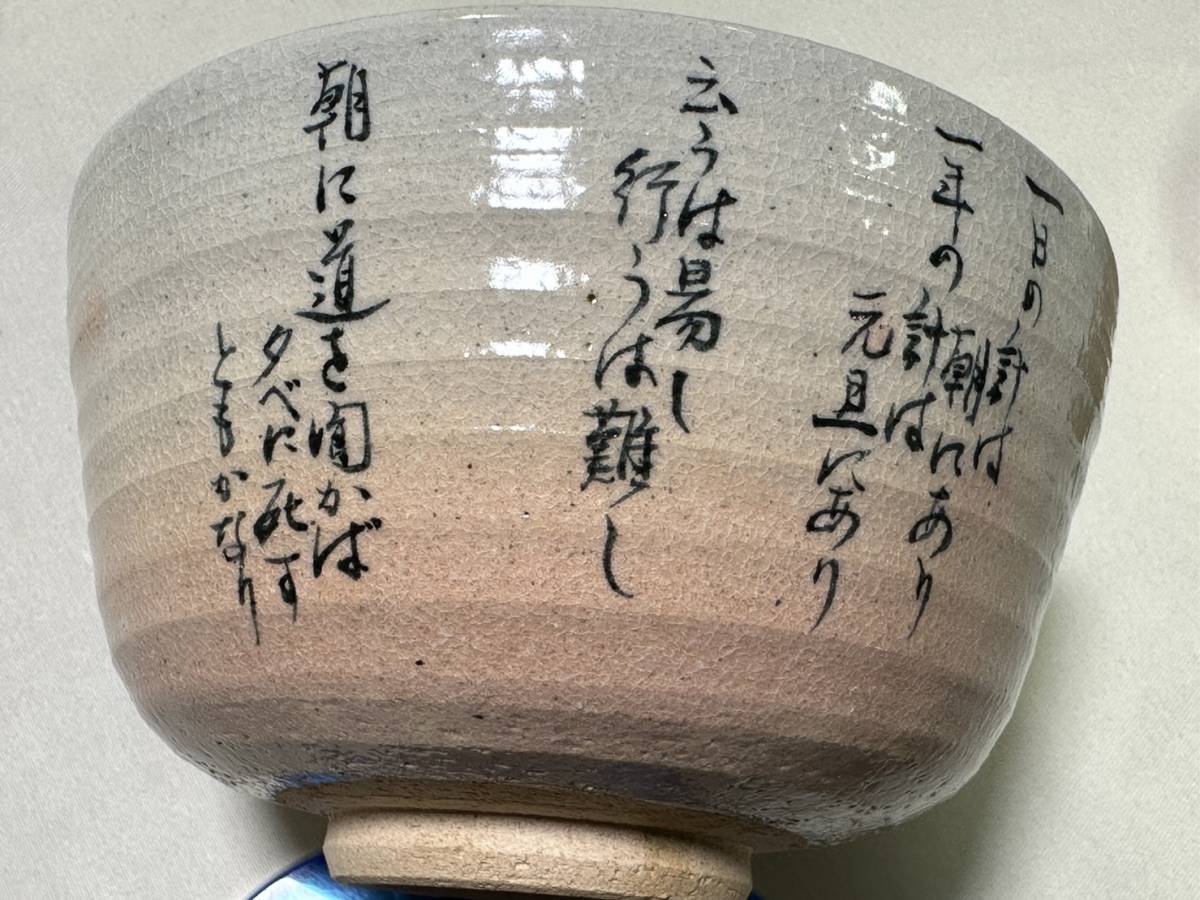 一日の計は
朝にあり
一年の計は
元旦にあり
云うは易し
行うは難し
朝に道を聞かば
夕べに死す
ともかなり